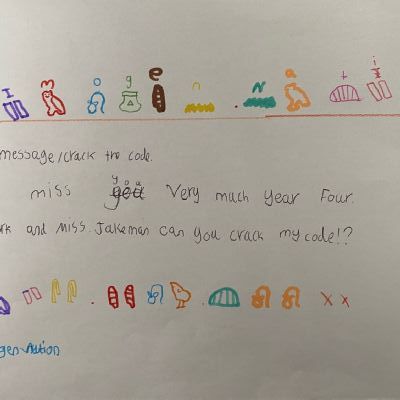 I M o g e n . N a t i
message/crack the code.
miss you Very much Year Four.
and miss. Jakeman can you crack my code!?
. . x x